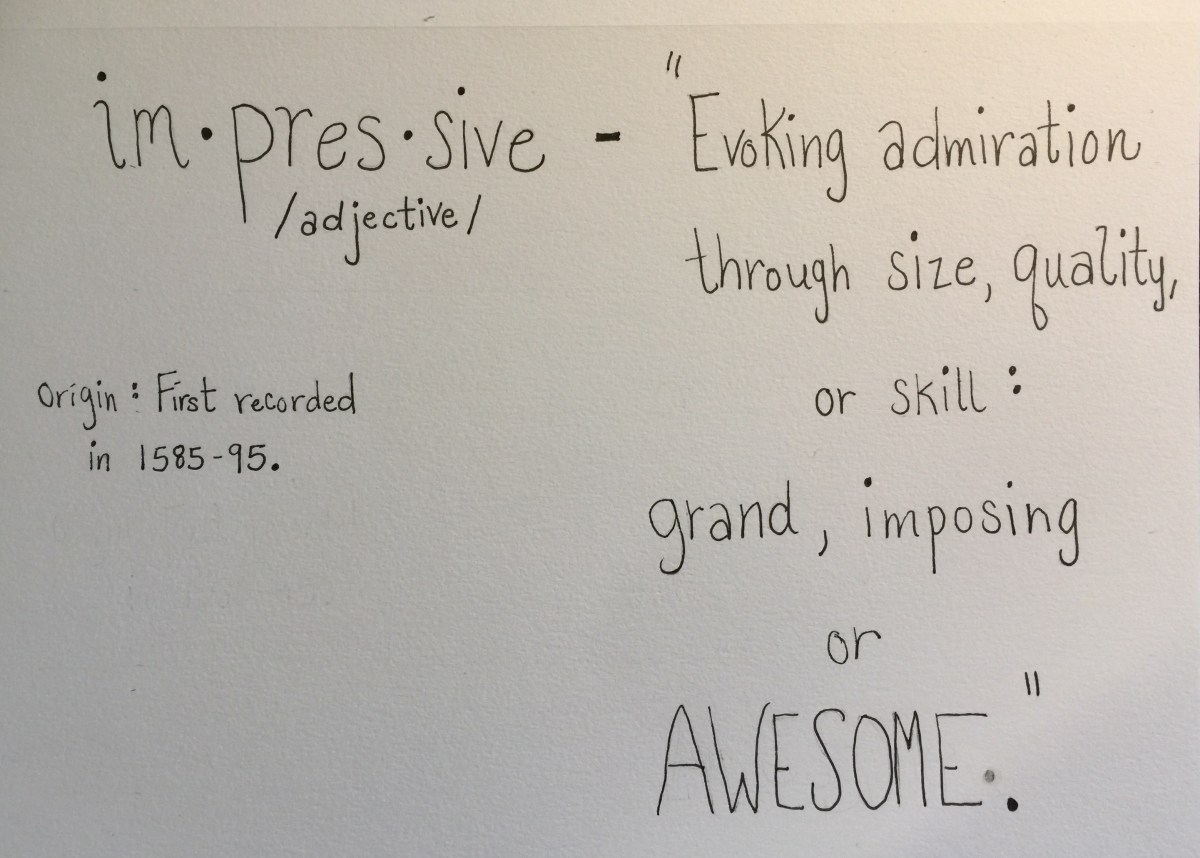 im·pres·sive - "Evoking admiration
/adjective/
through size, quality,
or skill:
Origin: First recorded
in 1585-95.
grand, imposing
or
AWESOME."